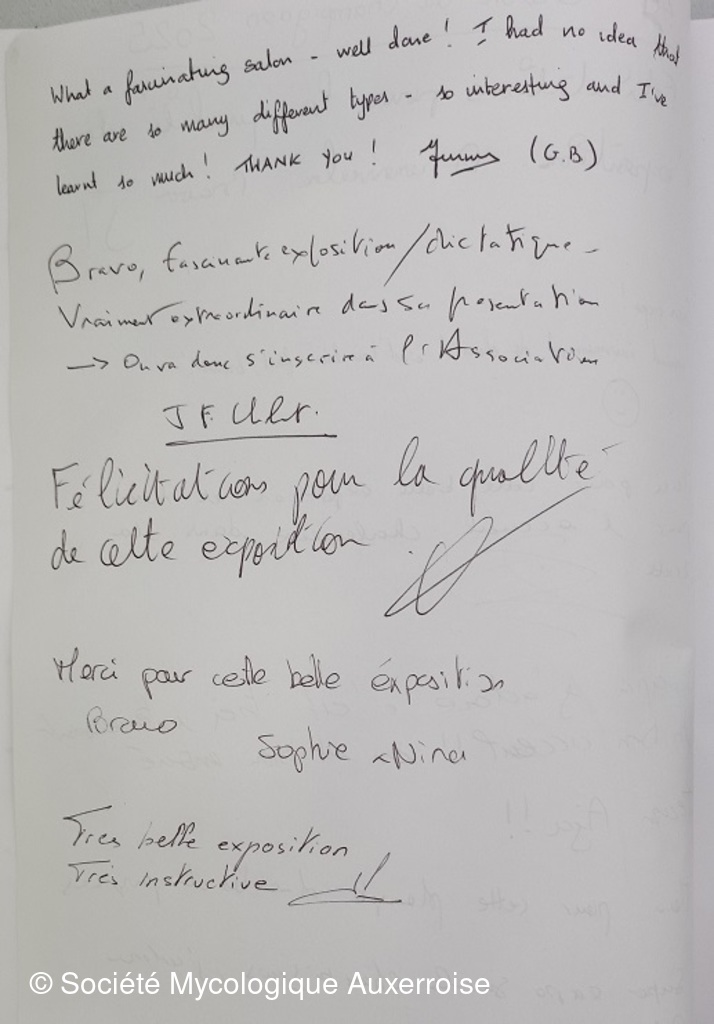 What a fascinating salon - well done! I had no idea that
there are so many different types - so interesting and I've
learnt so much! THANK YOU! (G.B)
Bravo, fascinante exposition / dictatique -
Vraiment extraordinaire dans sa presentation
→ On va donc s'inscrire à l'Association
Félicitations pour la qualité
de cette exposition.
Merci pour cette belle éxposition
Bravo
Sophie & Nina
Très belle exposition
Très instructive
© Société Mycologique Auxerroise